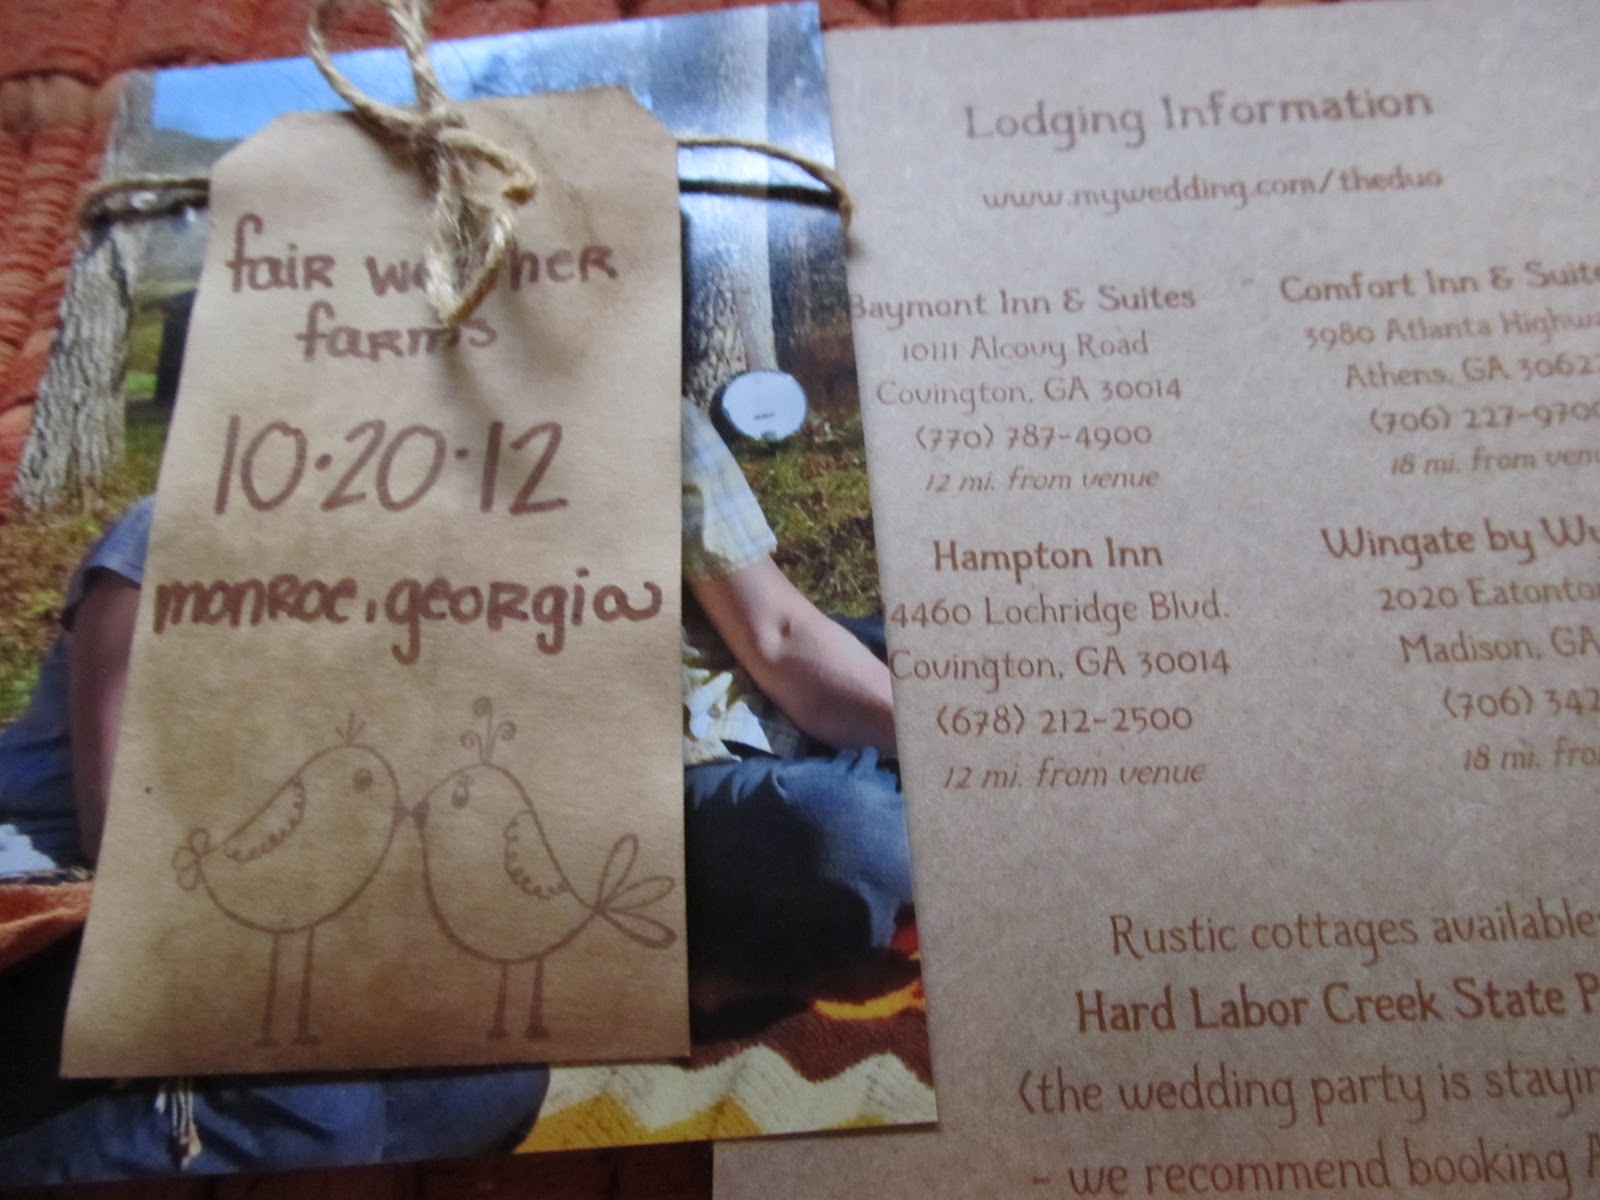 fair weather
farms
10·20·12
monroe, georgia
Lodging Information
www.mywedding.com/theduo
Baymont Inn & Suites
10111 Alcovy Road
Covington, GA 30014
(770) 787-4900
12 mi. from venue
Comfort Inn & Suite
3980 Atlanta Highw
Athens, GA 30622
(706) 227-9700
18 mi. from ven
Hampton Inn
14460 Lochridge Blvd.
Covington, GA 30014
(678) 212-2500
12 mi. from venue
Wingate by Wy
2020 Eatonto
Madison, GA
(706) 342
18 mi. fro
Rustic cottages available
Hard Labor Creek State P
(the wedding party is stayin
- we recommend booking A